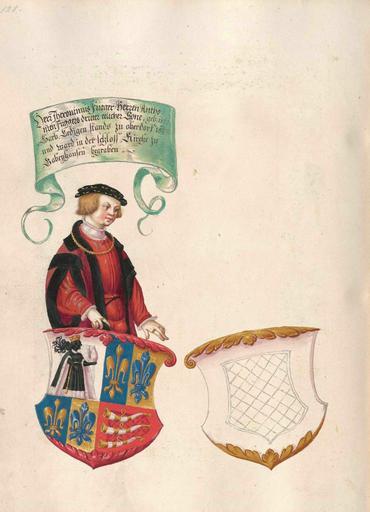 121.
Herr Iheronimus Fugger Herren Antho
nien Fuggers dritter elicher Sone,
Starb Ledigen stands zu oberdorf
und ward in der schloss Kirche zu
Babenhausen begraben